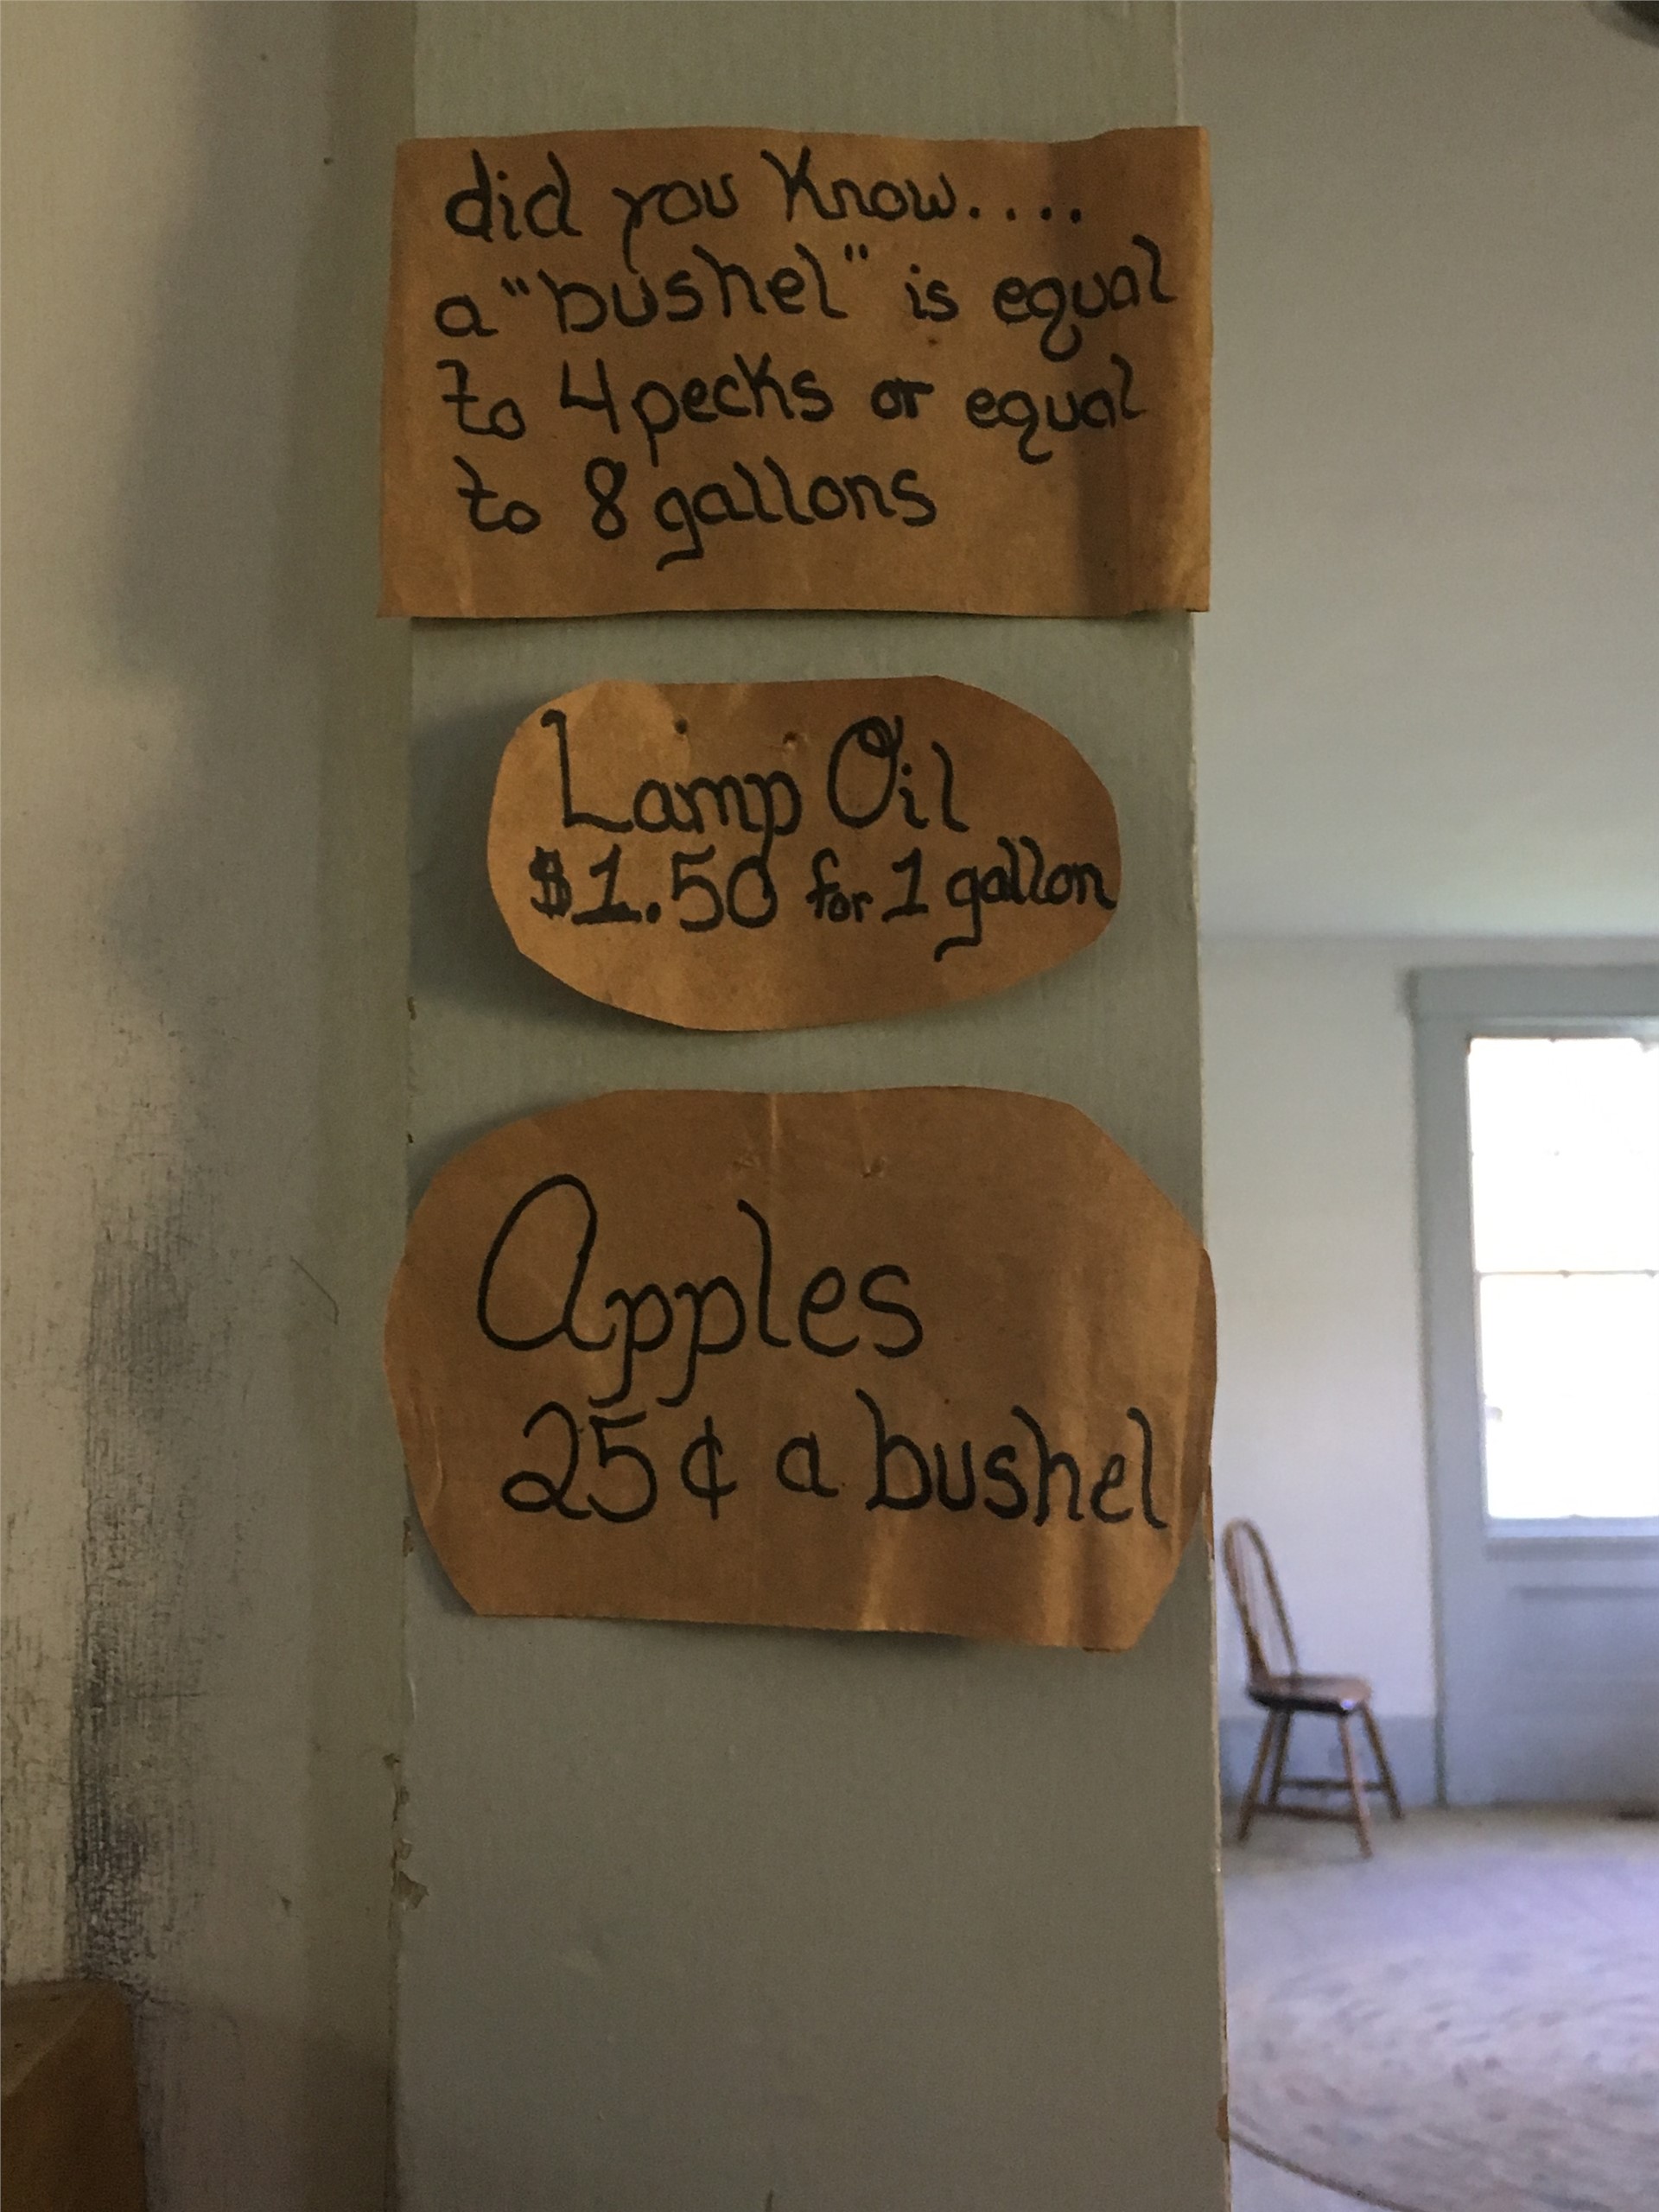 did you Know....
a "bushel" is equal
to 4 pecks or equal
to 8 gallons
Lamp Oil
$1.50 for 1 gallon
Apples
25¢ a bushel